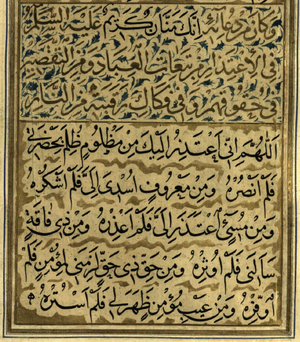 وكان من دعائه انك منان كريم عليه السلم
في الاعتذار من تبعات العباد ومن التقصير
في حقوقهم وفي فكاك رقبته من النار
اللهم اني اعتذر اليك من مظلوم ظلم بحضرتي
فلم انصره ومن معروف اسدي الي فلم اشكره
ومن مسيء اعتذر الي فلم اعذره ومن ذي فاقة
سألني فلم اوثره ومن حق ذي حق لزمني لمؤمن فلم
اوفره ومن عيب مؤمن ظهر لي فلم استره